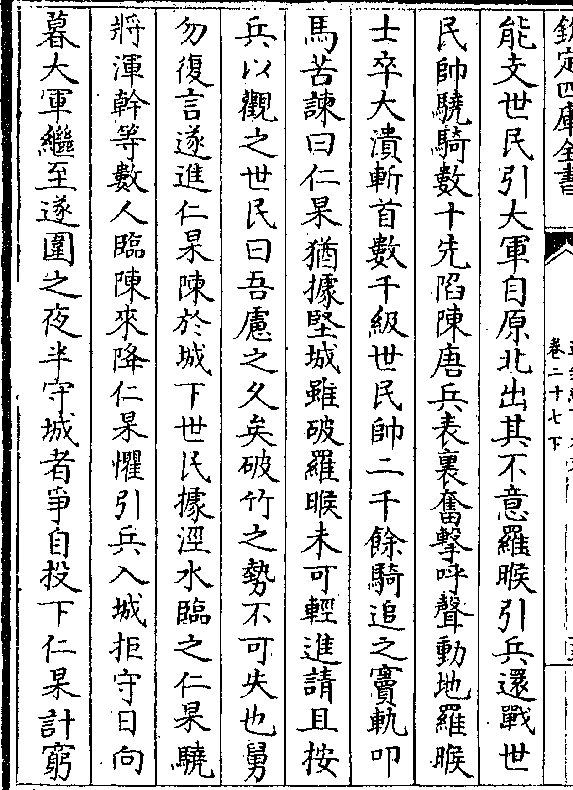 欽定四庫全書
卷二十七下
能支世民引大軍自原北出其不意羅睺引兵還戰世
民帥驍騎數十先陷陳唐兵表裏奮擊呼聲動地羅睺
士卒大潰斬首數千級世民帥二千餘騎追之竇軌叩
馬苦諫曰仁杲猶據堅城雖破羅睺未可輕進請且按
兵以觀之世民曰吾慮之久矣破竹之勢不可失也舅
勿復言遂進仁杲陳於城下世民據涇水臨之仁杲驍
將渾幹等數人臨陳來降仁杲懼引兵入城拒守日向
暮大軍繼至遂圍之夜半守城者爭自投下仁杲計窮